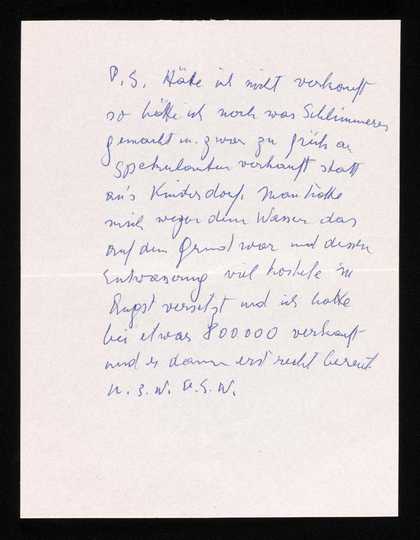 P.S. Hätte ich nicht verkauft
so hätte ich noch was Schlimmeres
gemacht u. zwar zu früh an
Spekulanten verkauft statt
an's Kinderdorf. Man hatte
mich wegen dem Wasser das
auf dem Grund war und dessen
Entwässerung viel kostete in
Angst versetzt und ich hatte
bei etwas 800000 verkauft
und es dann erst recht bereut
u. s. w. u. s. w.